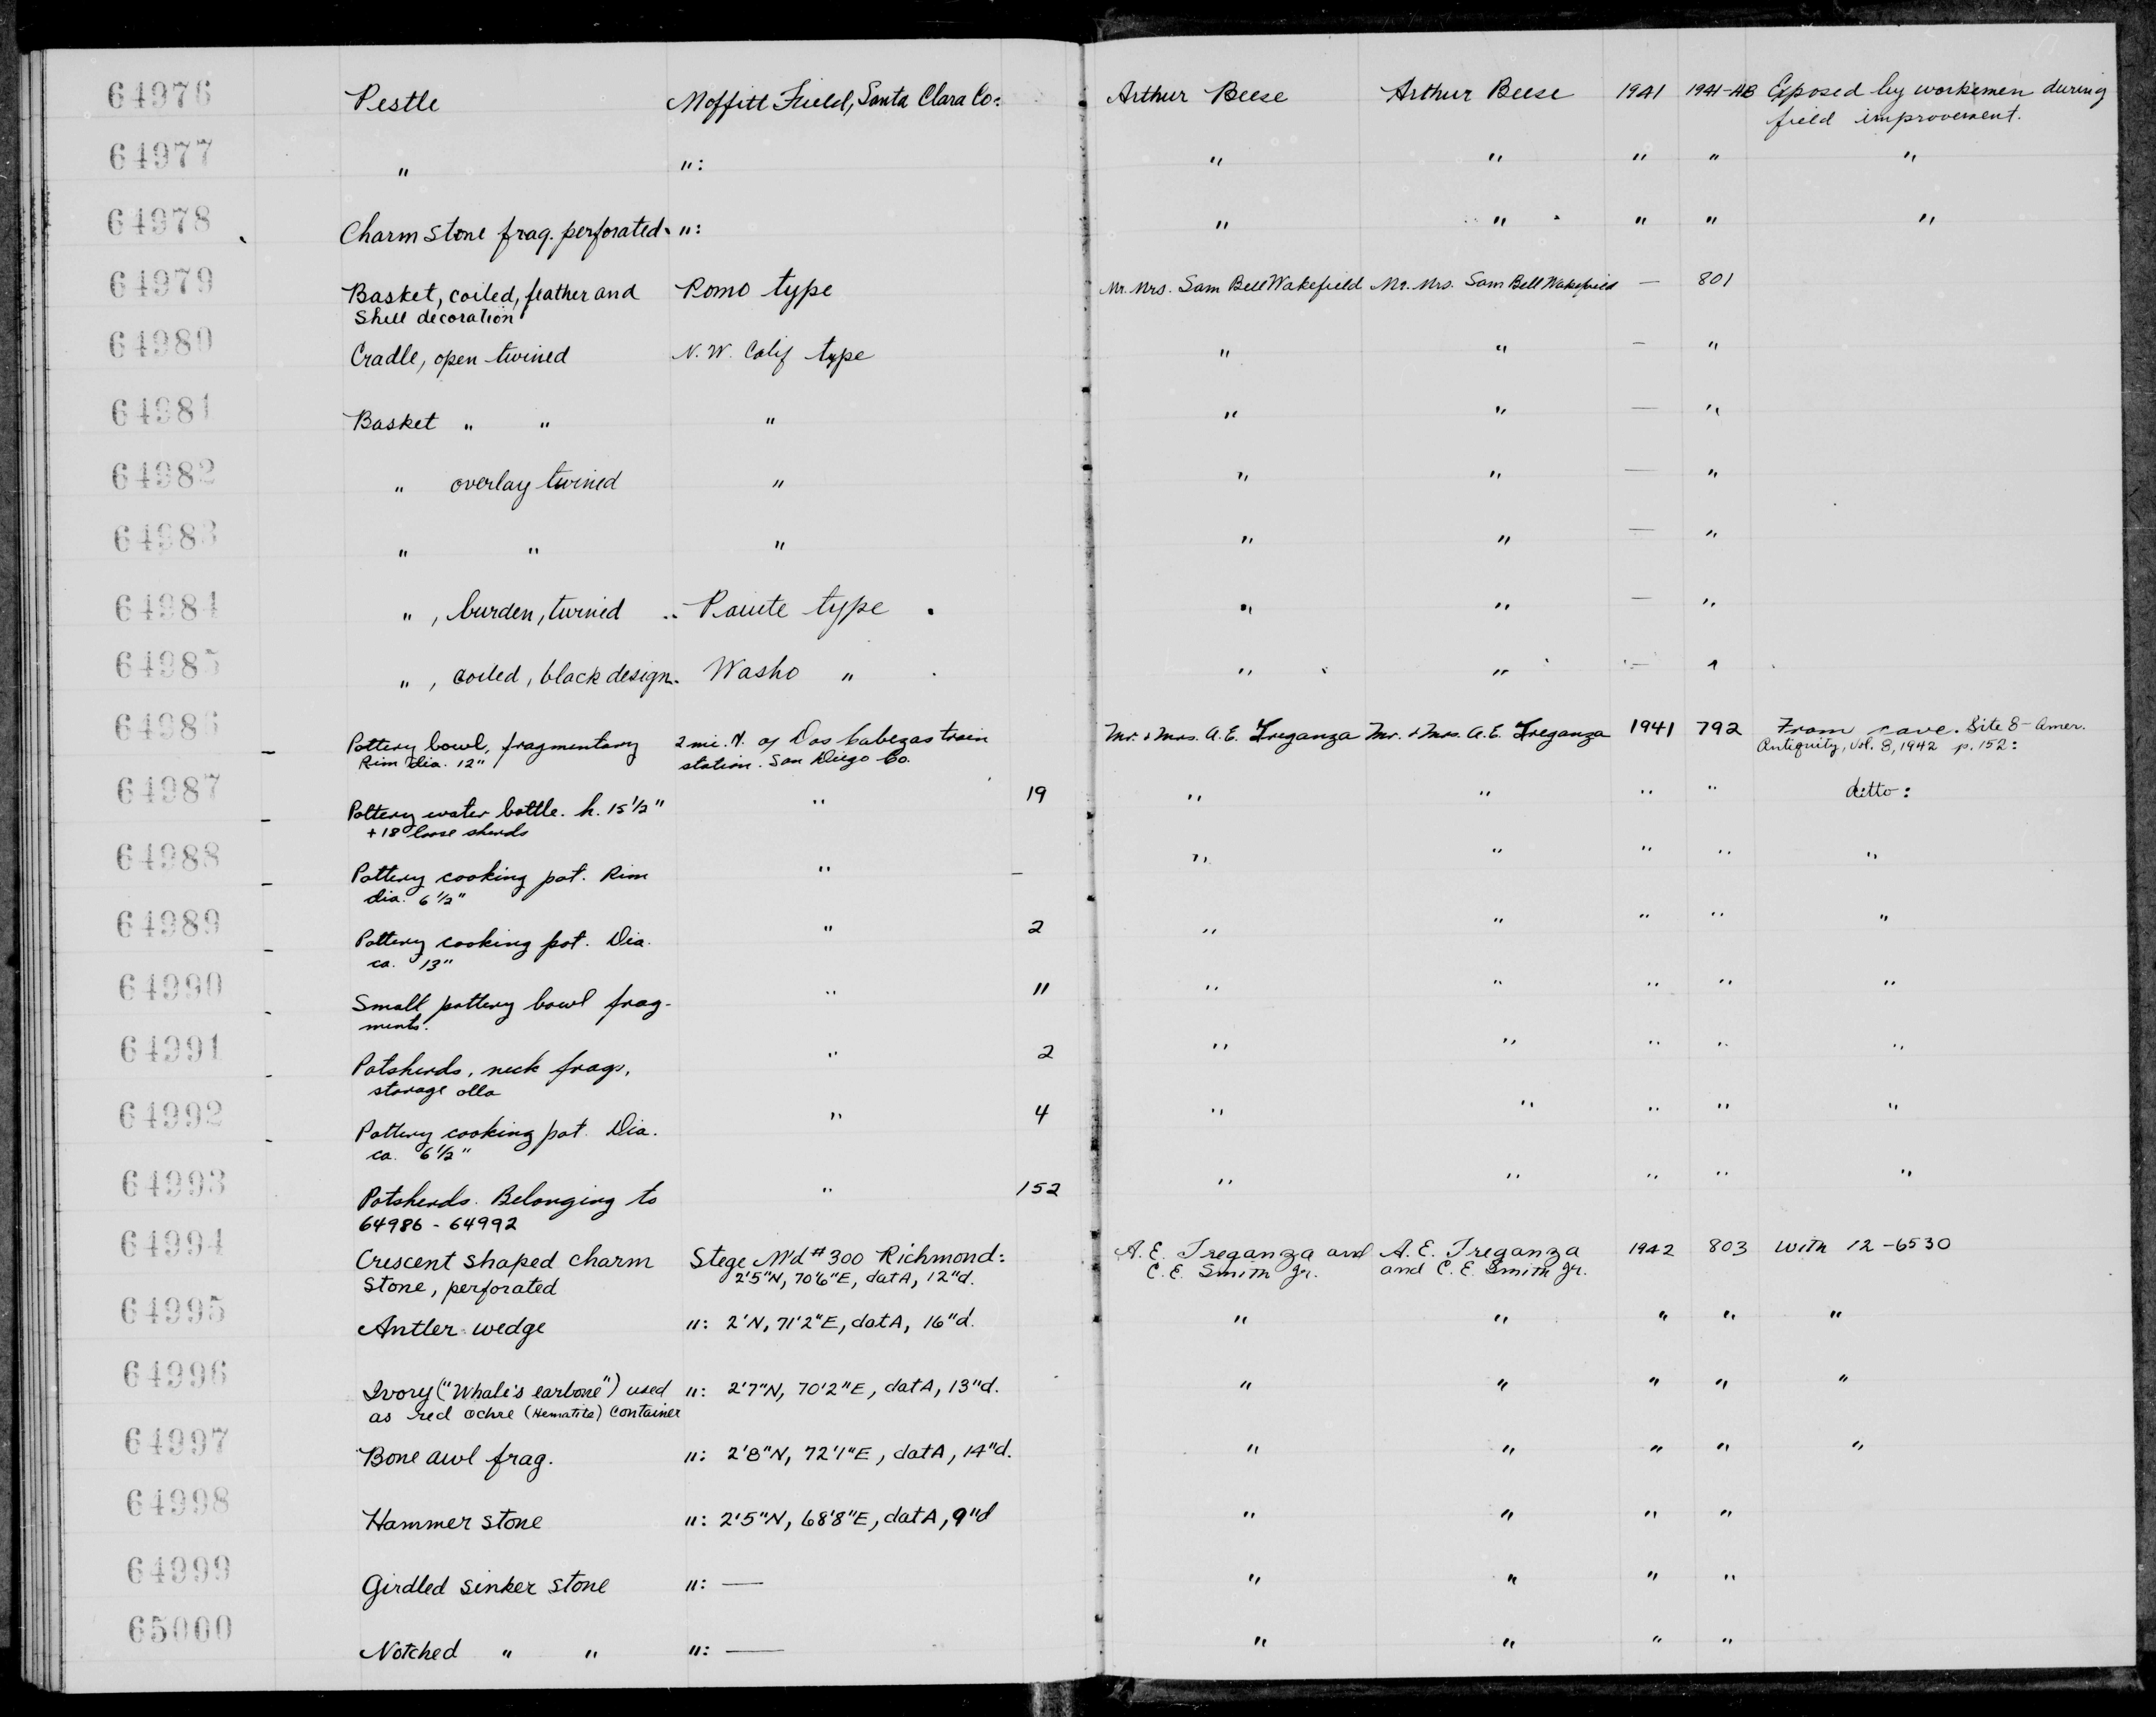 64976 Pestle Moffitt Field, Santa Clara Co: Arthur Beese Arthur Beese 1941 1941-AB Exposed by workemen during
field improvement.
64977 " ": " " " " "
64978 Charm stone frag. perforated. ": " " " " "
64979 Basket, coiled, feather and Pomo type Mr. Mrs. Sam Bell Wakefield Mr. Mrs. Sam Bell Wakefield — 801
Shell decoration
64980 Cradle, open twined N. W. Calif type " " — "
64981 Basket " " " " " — "
64982 " overlay twined " " " — "
64983 " " " " " — "
64984 " , burden, twined Paiute type " " — "
64985 " , coiled, black design. Washo " " " — "
64986 Pottery bowl, fragmentary 2 mi. N. of Dos Cabezas train Mr. & Mrs. A. E. Treganza Mr. & Mrs. A. E. Treganza 1941 792 From cave. Site 8 - Amer.
Rim dia. 12" station. San Diego Co. Antiquity, Vol. 8, 1942 p. 152:
64987 Pottery water bottle. h. 15 1/2" " 19 " " " " ditto:
+ 18 loose sherds
64988 Pottery cooking pot. Rim " — " " " " "
dia. 6 1/2"
64989 Pottery cooking pot. Dia. " 2 " " " " "
ca. 13"
64990 Small pottery bowl frag- " 11 " " " " "
ments.
64991 Potsherds, neck frags, " 2 " " " " "
storage olla
64992 Pottery cooking pot. Dia. " 4 " " " " "
ca. 6 1/2"
64993 Potsherds. Belonging to " 152 " " " " "
64986 - 64992
64994 Crescent shaped charm Stege M'd #300 Richmond: A. E. Treganza and A. E. Treganza 1942 803 with 12-6530
Stone, perforated 2'5"N, 70'6"E, dat A, 12"d. C. E. Smith Jr. and C. E. Smith Jr.
64995 Antler wedge ": 2'N, 71'2"E, dat A, 16"d. " " " " "
64996 Ivory ("Whale's earbone") used ": 2'7"N, 70'2"E, dat A, 13"d. " " " " "
as red ochre (Hematite) container
64997 Bone awl frag. ": 2'8"N, 72'1"E, dat A, 14"d. " " " " "
64998 Hammer stone ": 2'5"N, 68'8"E, dat A, 9"d " " " "
64999 Girdled sinker stone ": — " " " "
65000 Notched " " ": — " " " "